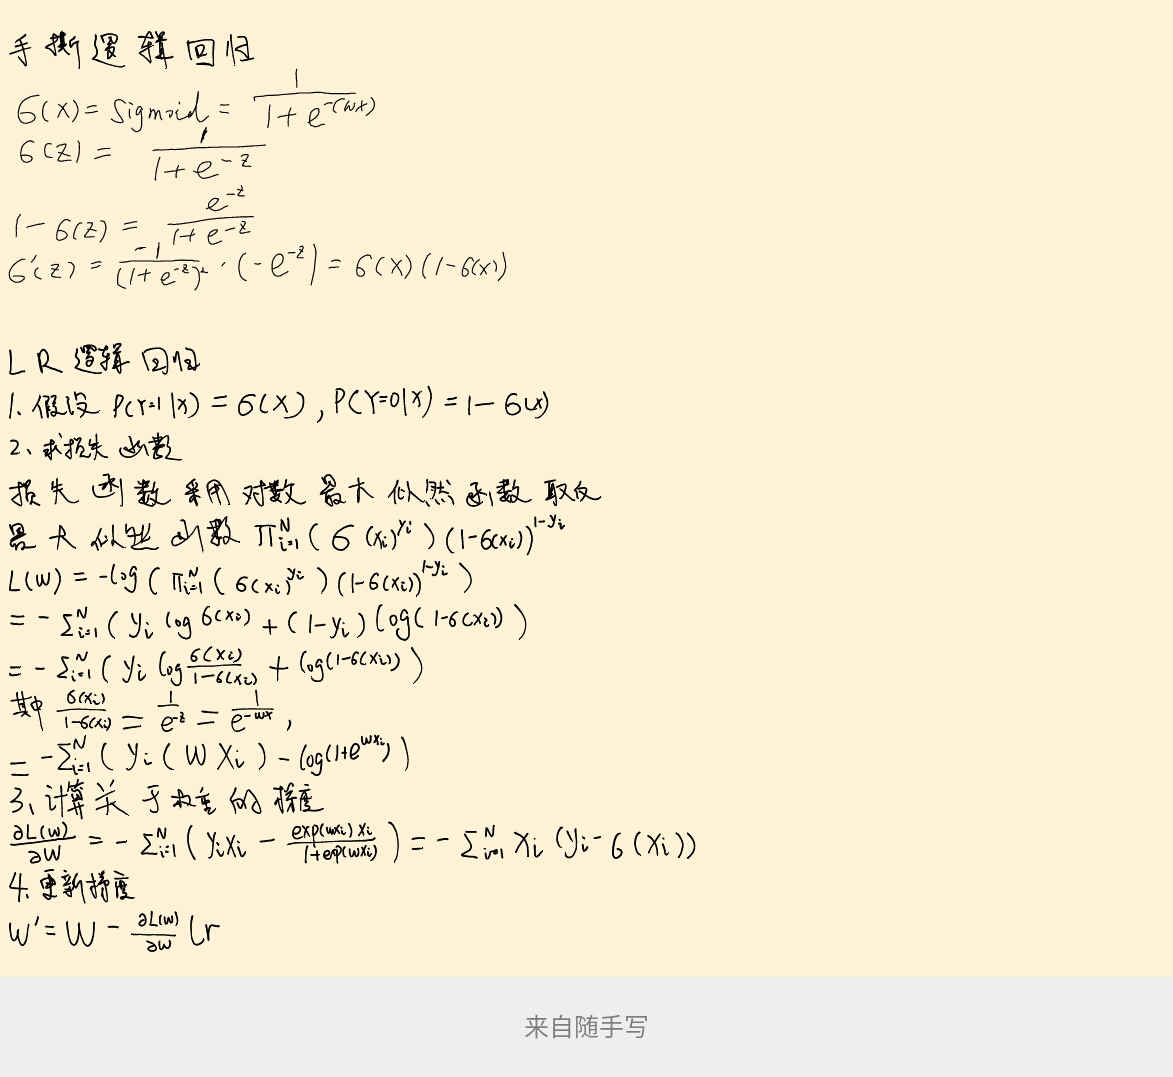 手撕逻辑回归
σ(x) = Sigmoid = 1/(1+e^{-(wx)})
σ(z) = 1/(1+e^{-z})
1-σ(z) = e^{-z}/(1+e^{-z})
σ'(z) = -1/(1+e^{-z})² · (-e^{-z}) = σ(x)(1-σ(x))
LR 逻辑回归
1. 假设 P(Y=1|X) = σ(X), P(Y=0|X) = 1-σ(x)
2、求损失函数
损失函数采用对数最大似然函数取反
最大似然函数 Π_{i=1}^{N}(σ(x_i)^{y_i})(1-σ(x_i))^{1-y_i}
L(w) = -log(Π_{i=1}^{N}(σ(x_i)^{y_i})(1-σ(x_i))^{1-y_i})
= -Σ_{i=1}^{N}(y_i log σ(x_i) + (1-y_i)log(1-σ(x_i)))
= -Σ_{i=1}^{N}(y_i log σ(x_i)/(1-σ(x_i)) + log(1-σ(x_i)))
其中 σ(x_i)/(1-σ(x_i)) = 1/e^{-z} = 1/e^{-wx},
= -Σ_{i=1}^{N}(y_i(WX_i) - log(1+e^{wx_i}))
3、计算关于权重的梯度
∂L(w)/∂W = -Σ_{i=1}^{N}(y_i x_i - exp(wx_i)x_i/(1+exp(wx_i))) = -Σ_{i=1}^{N} x_i(y_i-σ(x_i))
4. 更新梯度
W' = W - ∂L(w)/∂W lr
来自随手写